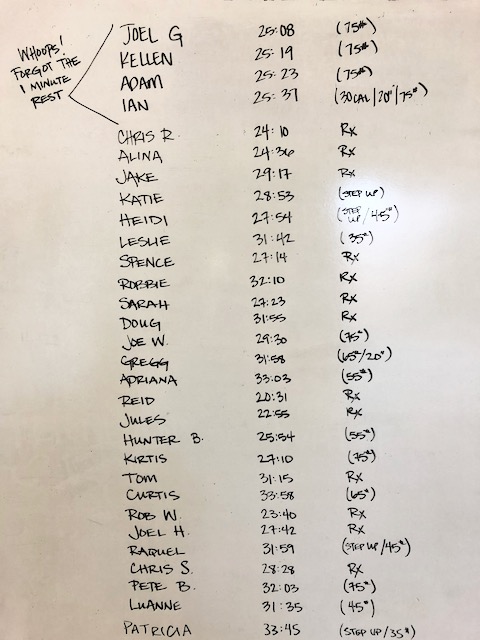 WHOOPS!
FORGOT THE
1 MINUTE
REST
JOEL G 25:08 (75#)
KELLEN 25:19 (75#)
ADAM 25:23 (75#)
IAN 25:37 (30CAL/20"/75#)
CHRIS R. 24:10 Rx
ALINA 24:36 Rx
JAKE 29:17 Rx
KATIE 28:53 (STEP UP)
HEIDI 27:54 (STEP UP/45#)
LESLIE 31:42 (35#)
SPENCE 27:14 Rx
ROBBIE 32:10 Rx
SARAH 27:23 Rx
DOUG 31:55 Rx
JOE W. 29:30 (75#)
GREGG 31:58 (65#/20")
ADRIANA 33:03 (55#)
REID 20:31 Rx
JULES 22:55 Rx
HUNTER B. 25:54 (55#)
KIRTIS 27:10 (75#)
TOM 31:15 Rx
CURTIS 33:58 (65#)
ROB W. 23:40 Rx
JOEL H. 27:42 Rx
RAQUEL 31:59 (STEP UP/45#)
CHRIS S. 28:28 Rx
PETE B. 32:03 (75#)
LUANNE 31:35 (45#)
PATRICIA 33:45 (STEP UP/35#)